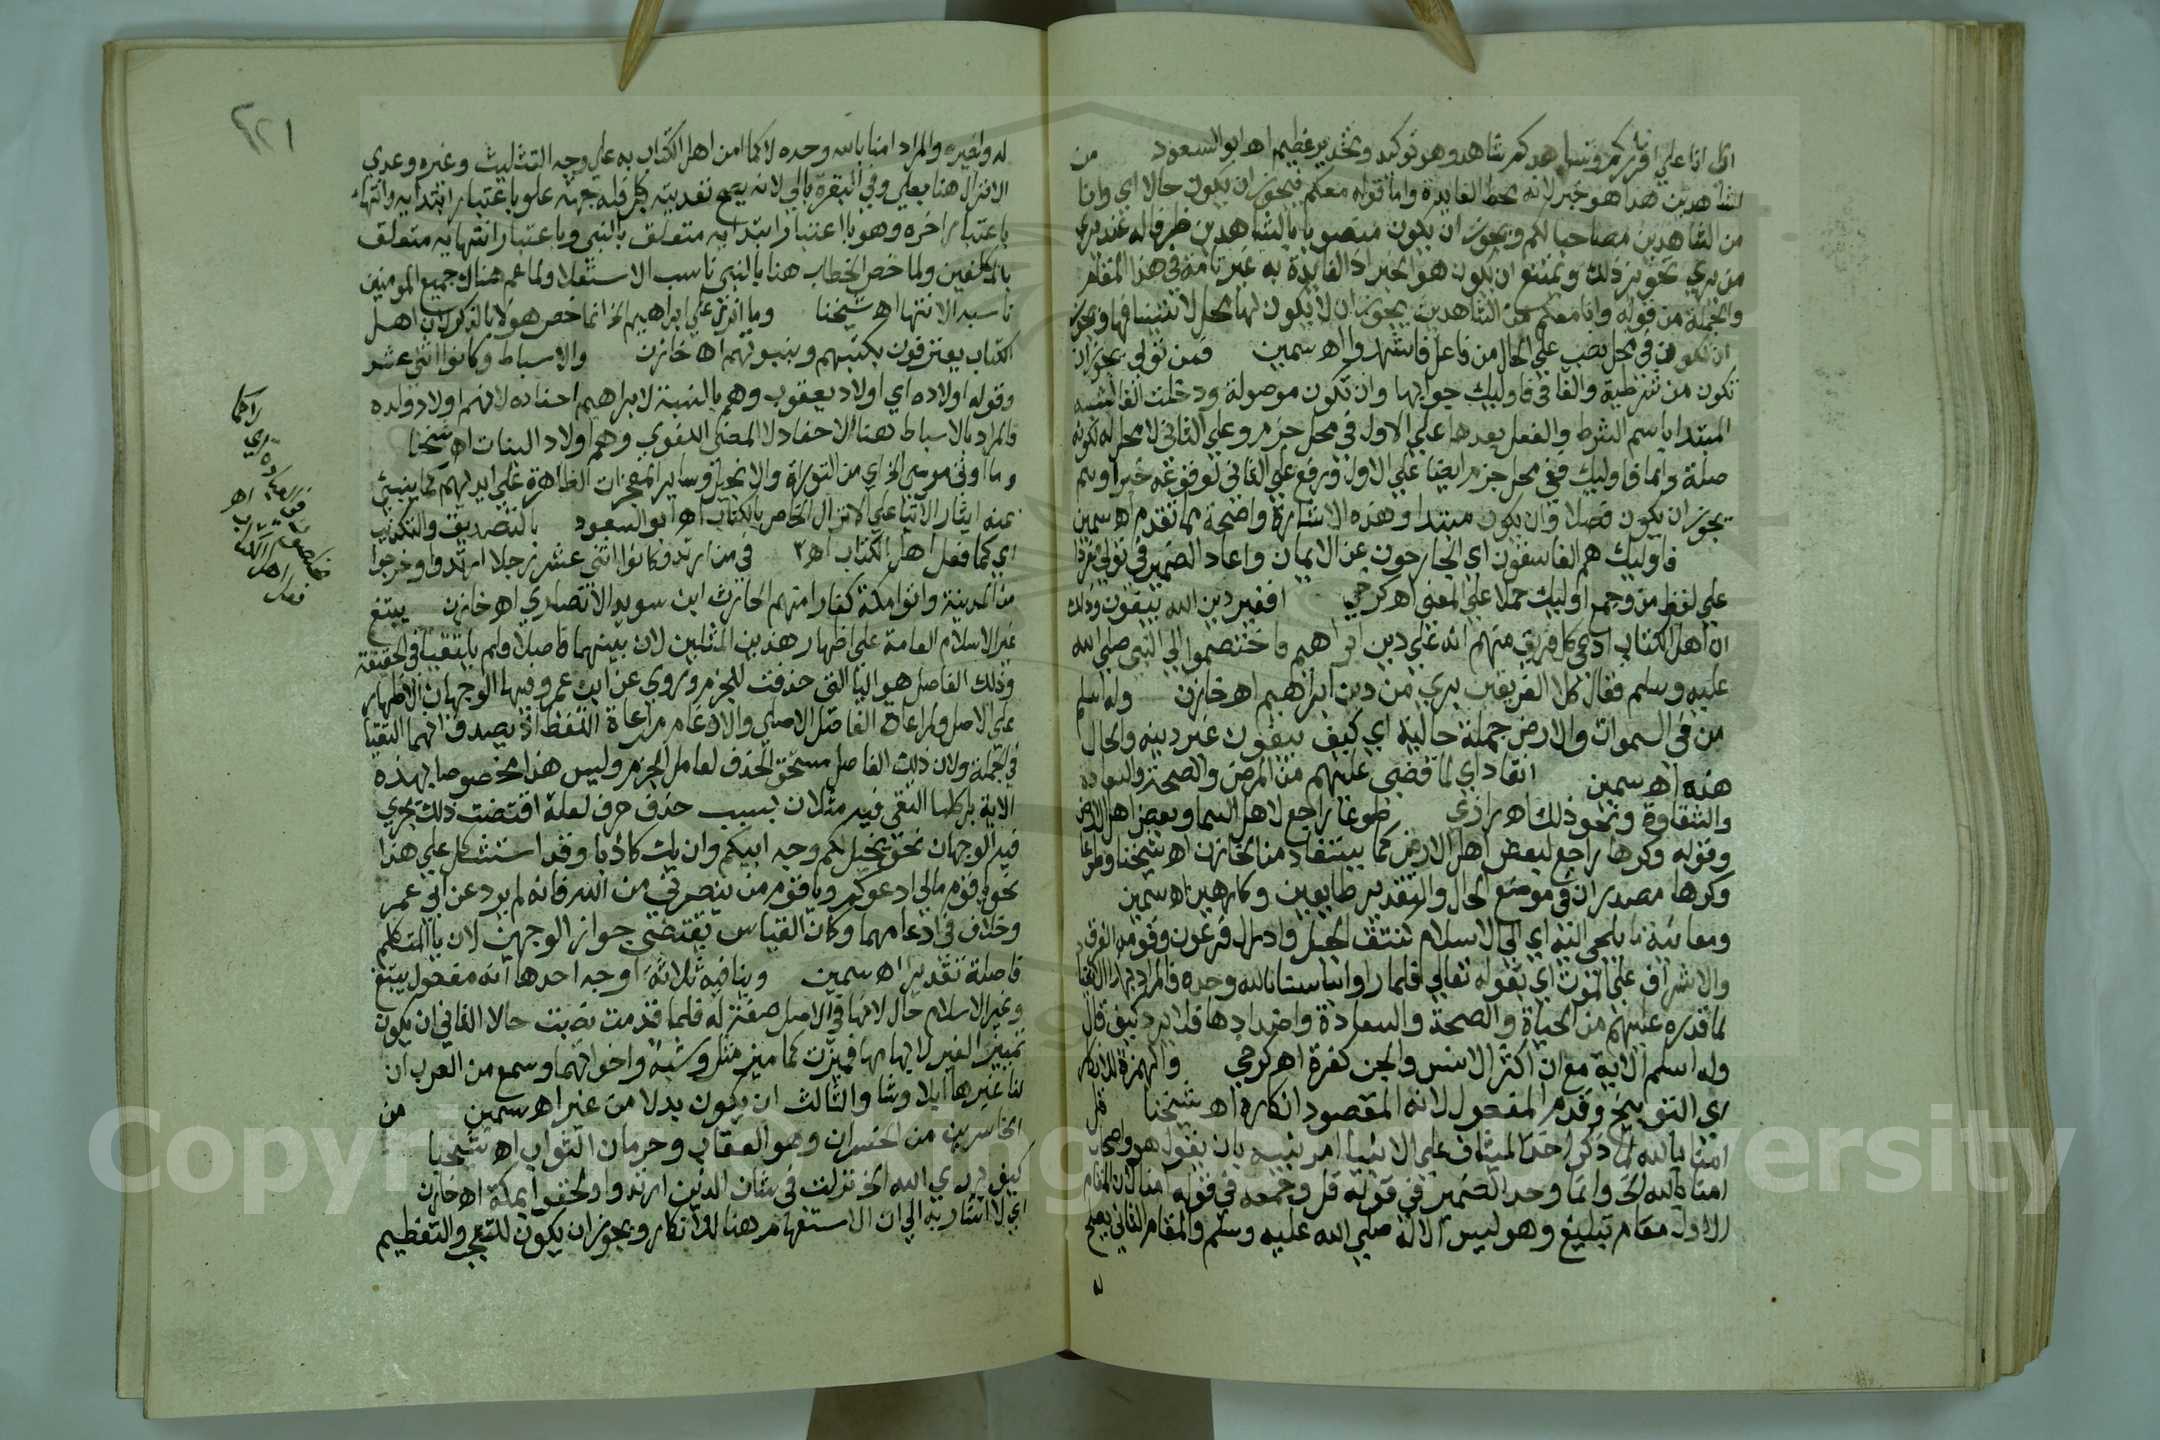 اي انا علي اقراركم وتشاهدكم شاهد وهو توكيد وتحذير عظيم اهـ ابو السعود من
الشاهدين هذا هو خبر لانه محط الفايدة واما قوله معكم فيجوز ان يكون حالا اي وانا
من الشاهدين مصاحبا لكم ويجوز ان يكون منصوبا بالشاهدين ظرفا له عند من يري
من يري تجويز ذلك ويمتنع ان يكون هو الخبر اذ الفايدة به غير تامة في هذا المقام
والجملة من قوله وانا معكم من الشاهدين يجوز ان لا يكون لها محل لاستينافها ويجوز
ان تكون في محل نصب علي الحال من فاعل فاشهدوا اهـ سمين فمن تولي يجوز ان
تكون من شرطية والفا في فاوليك جوابها وان تكون موصولة ودخلت الفا لشبه
المبتدا باسم الشرط والفعل بعدها علي الاول في محل جزم وعلي الثاني لا محل له لكونه
صلة واما فاوليك ففي محل جزم ايضا علي الاول ورفع علي الثاني لوقوعه خبرا وهم
يجوز ان يكون فصلا وان يكون مبتدا وهذه الاشارة واضحة مما تقدم اهـ سمين
فاوليك هم الفاسقون اي الخارجون عن الايمان واعاد الضمير في تولي مفردا
علي لفظ من وجمع اوليك حملا علي المعني اهـ كرخي افغير دين الله يبغون وذلك
ان اهل الكتاب ادعي كل فريق منهم انه علي دين ابراهيم فاختصموا الي النبي صلي الله
عليه وسلم فقال كلا الفريقين بري من دين ابراهيم اهـ خازن وله اسلم
من في السموات والارض جملة حالية اي كيف يبغون غير دينه والحال
هذه اهـ سمين انقاد اي لما قضي عليهم من المرض والصحة والسعادة
والشقاوة ونحو ذلك اهـ رازي طوعا راجع لاهل السما وبعض اهل الارض
وقوله وكرها راجع لبعض اهل الارض كما يستفاد من الخازن اهـ شيخنا وطوعا
وكرها مصدران في موضع الحال والتقدير طايعين وكارهين اهـ سمين
ومعاينة ما يلجي اليه اي الي الاسلام كنتق الجبل وادراك فرعون وقومه الغرق
والاشراف علي الموت اي بقوله تعالي فلما راوا باسنا قالوا امنا بالله وحده فالمراد بهذا الانقياد
لما قدره عليهم من الحياة والصحة والسعادة واضدادها فلا يرد كيف قال
وله اسلم الاية مع ان اكثر الانس والجن كفرة اهـ كرخي والهمزة للانكار
اي التوبيخ وقدم المفعول لانه المقصود انكاره اهـ شيخنا قل
امنا بالله لما ذكر اخذ الميثاق علي الانبيا امر نبيه بان يقول هو واصحابه
امنا بالله الخ وانما وحد الضمير في قوله قل وجمعه في قوله امنا لان المقام
الاول مقام تبليغ وهو ليس الا له صلي الله عليه وسلم والمقام الثاني يصلح
له
٢٢١
له ولغيره والمراد امنا بالله وحده لا كما امن اهل الكتاب به علي وجه التثليث وغيره وعدي
الانزال هنا بعلي وفي البقرة بالي لانه يصح تعديته بكل فله جهة علو باعتبار ابتدايه وانتهاء
باعتبار اخره وهو باعتبار ابتدايه متعلق بالنبي وباعتبار انتهايه متعلق
بالمكلفين ولما خص الخطاب هنا بالنبي ناسب الاستعلا ولما عم هناك جميع المومنين
ناسبه الانتها اهـ شيخنا وما انزل علي ابراهيم الخ انما خص هولا بالذكر لان اهل
الكتاب يعترفون بكتبهم وبنبوتهم اهـ خازن والاسباط وكانوا اثني عشر
وقوله اولاده اي اولاد يعقوب وهم بالنسبة لابراهيم احفاده لانهم اولاد ولده
فالمراد بالاسباط هنا الاحفاد لا المعني اللغوي وهم اولاد البنات اهـ شيخنا
وما اوتي موسي الخ اي من التوراة والانجيل وساير المعجزات الظاهرة علي ايديهم كما ينبئ
عنه ايثار الايتا علي الانزال الخاص بالكتاب اهـ ابو السعود بالتصديق والتكذيب
اي كما فعل اهل الكتاب اهـ فمن ارتد وكانوا اثني عشر رجلا ارتدوا وخرجوا
من المدينة واتوا مكة كفارا منهم الحارث ابن سويد الانصاري اهـ خازن يبتغ
غير الاسلام العامة علي اظهار هذين المثلين لان بينهما فاصلا ولم يلتقيا في الحقيقة
وذلك الفاصل هو اليا التي حذفت للجزم وروي عن ابي عمرو فيها الوجهان الاظهار
علي الاصل ولمراعاة الفاصل الاصلي والادغام مراعاة اللفظ اذ يصدق انهما التقيا
في الجملة ولان ذلك الفاصل مستحق الحذف لعامل الجزم وليس هذا مخصوصا بهذه
الاية بل كلما التقي فيه مثلان بسبب حذف حرف لعلة اقتضت ذلك يجري
فيه الوجهان نحو يخل لكم وجه ابيكم وان يك كاذبا وقد استشكل علي هذا
نحو يا قوم مالي ادعوكم ويا قوم من ينصرني من الله فانه لم يرد عن ابي عمر
وخلاف في ادغامهما وكان القياس يقتضي جواز الوجهين لان يا المتكلم
فاصلة تقديرا اهـ سمين دينا فيه ثلاثة اوجه احدها انه مفعول يبتغ
وغير الاسلام حال لانها في الاصل صفة له فلما قدمت نصبت حالا الثاني ان يكون
تمييزا لغير لابهامها فميزت كما ميز مثل وشبه واخواتهما وسمع من العرب ان
لنا غيرها ابلا وشا والثالث ان يكون بدلا من غير اهـ سمين من
الخاسرين من الخسران وهو العقاب وحرمان الثواب اهـ شيخنا
كيف يهدي الله الخ نزلت في شان الذين ارتدوا ولحقوا بمكة اهـ خازن
اي لا اشار به الي ان الاستفهام هنا للانكار ويجوز ان يكون للتعجب والتعظيم
اهل الكتاب
Copyright © King Saud University